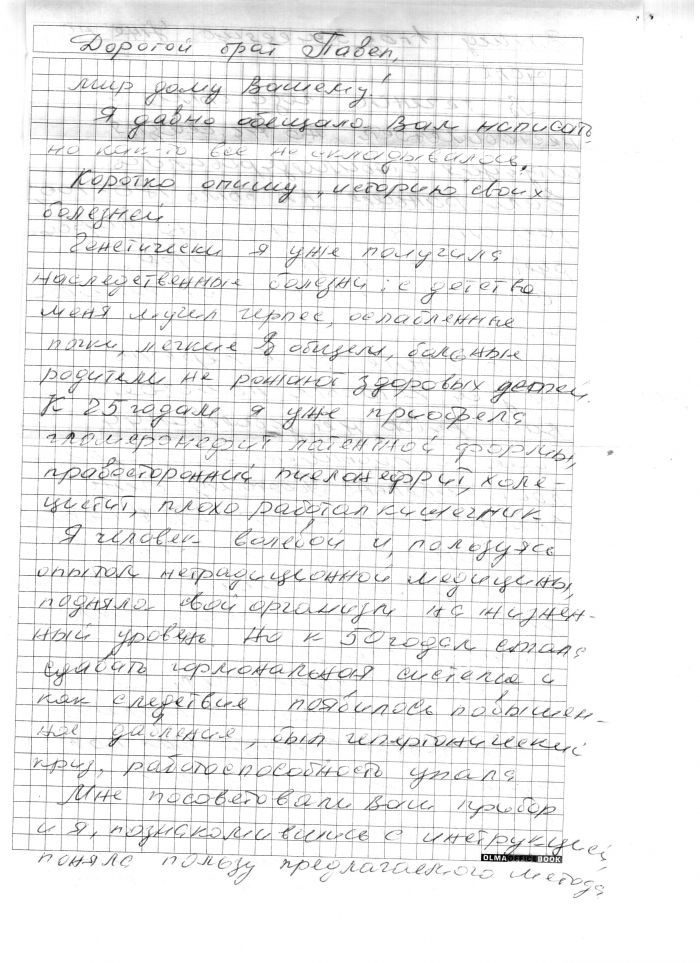 Дорогой брат Павел,
мир дому Вашему!
Я давно обещала Вам написать,
но как-то все не складывалось.
Коротко опишу "историю" своих
болезней
Генетически я уже получила
наследственные болезни: с детства
меня мучил герпес, ослабленные
почки, легкие В общем, больные
родители не рожают здоровых детей.
К 25 годам я уже приобрела
гломеронефрит латентной формы,
правосторонний пиелонефрит, холе-
цистит, плохо работал кишечник
Я человек волевой и, пользуясь
опытом нетрадиционной медицины,
подняла свой организм на жизнен-
ный уровень Но к 50 годам стала
сдавать гормональная система и
как следствие появилось повышен-
ное давление, был гипертонический
криз, работоспособность упала
Мне посоветовали Ваш прибор
и я, познакомившись с инструкцией,
поняла пользу предлагаемого метода
OLMA OFFICE BOOK